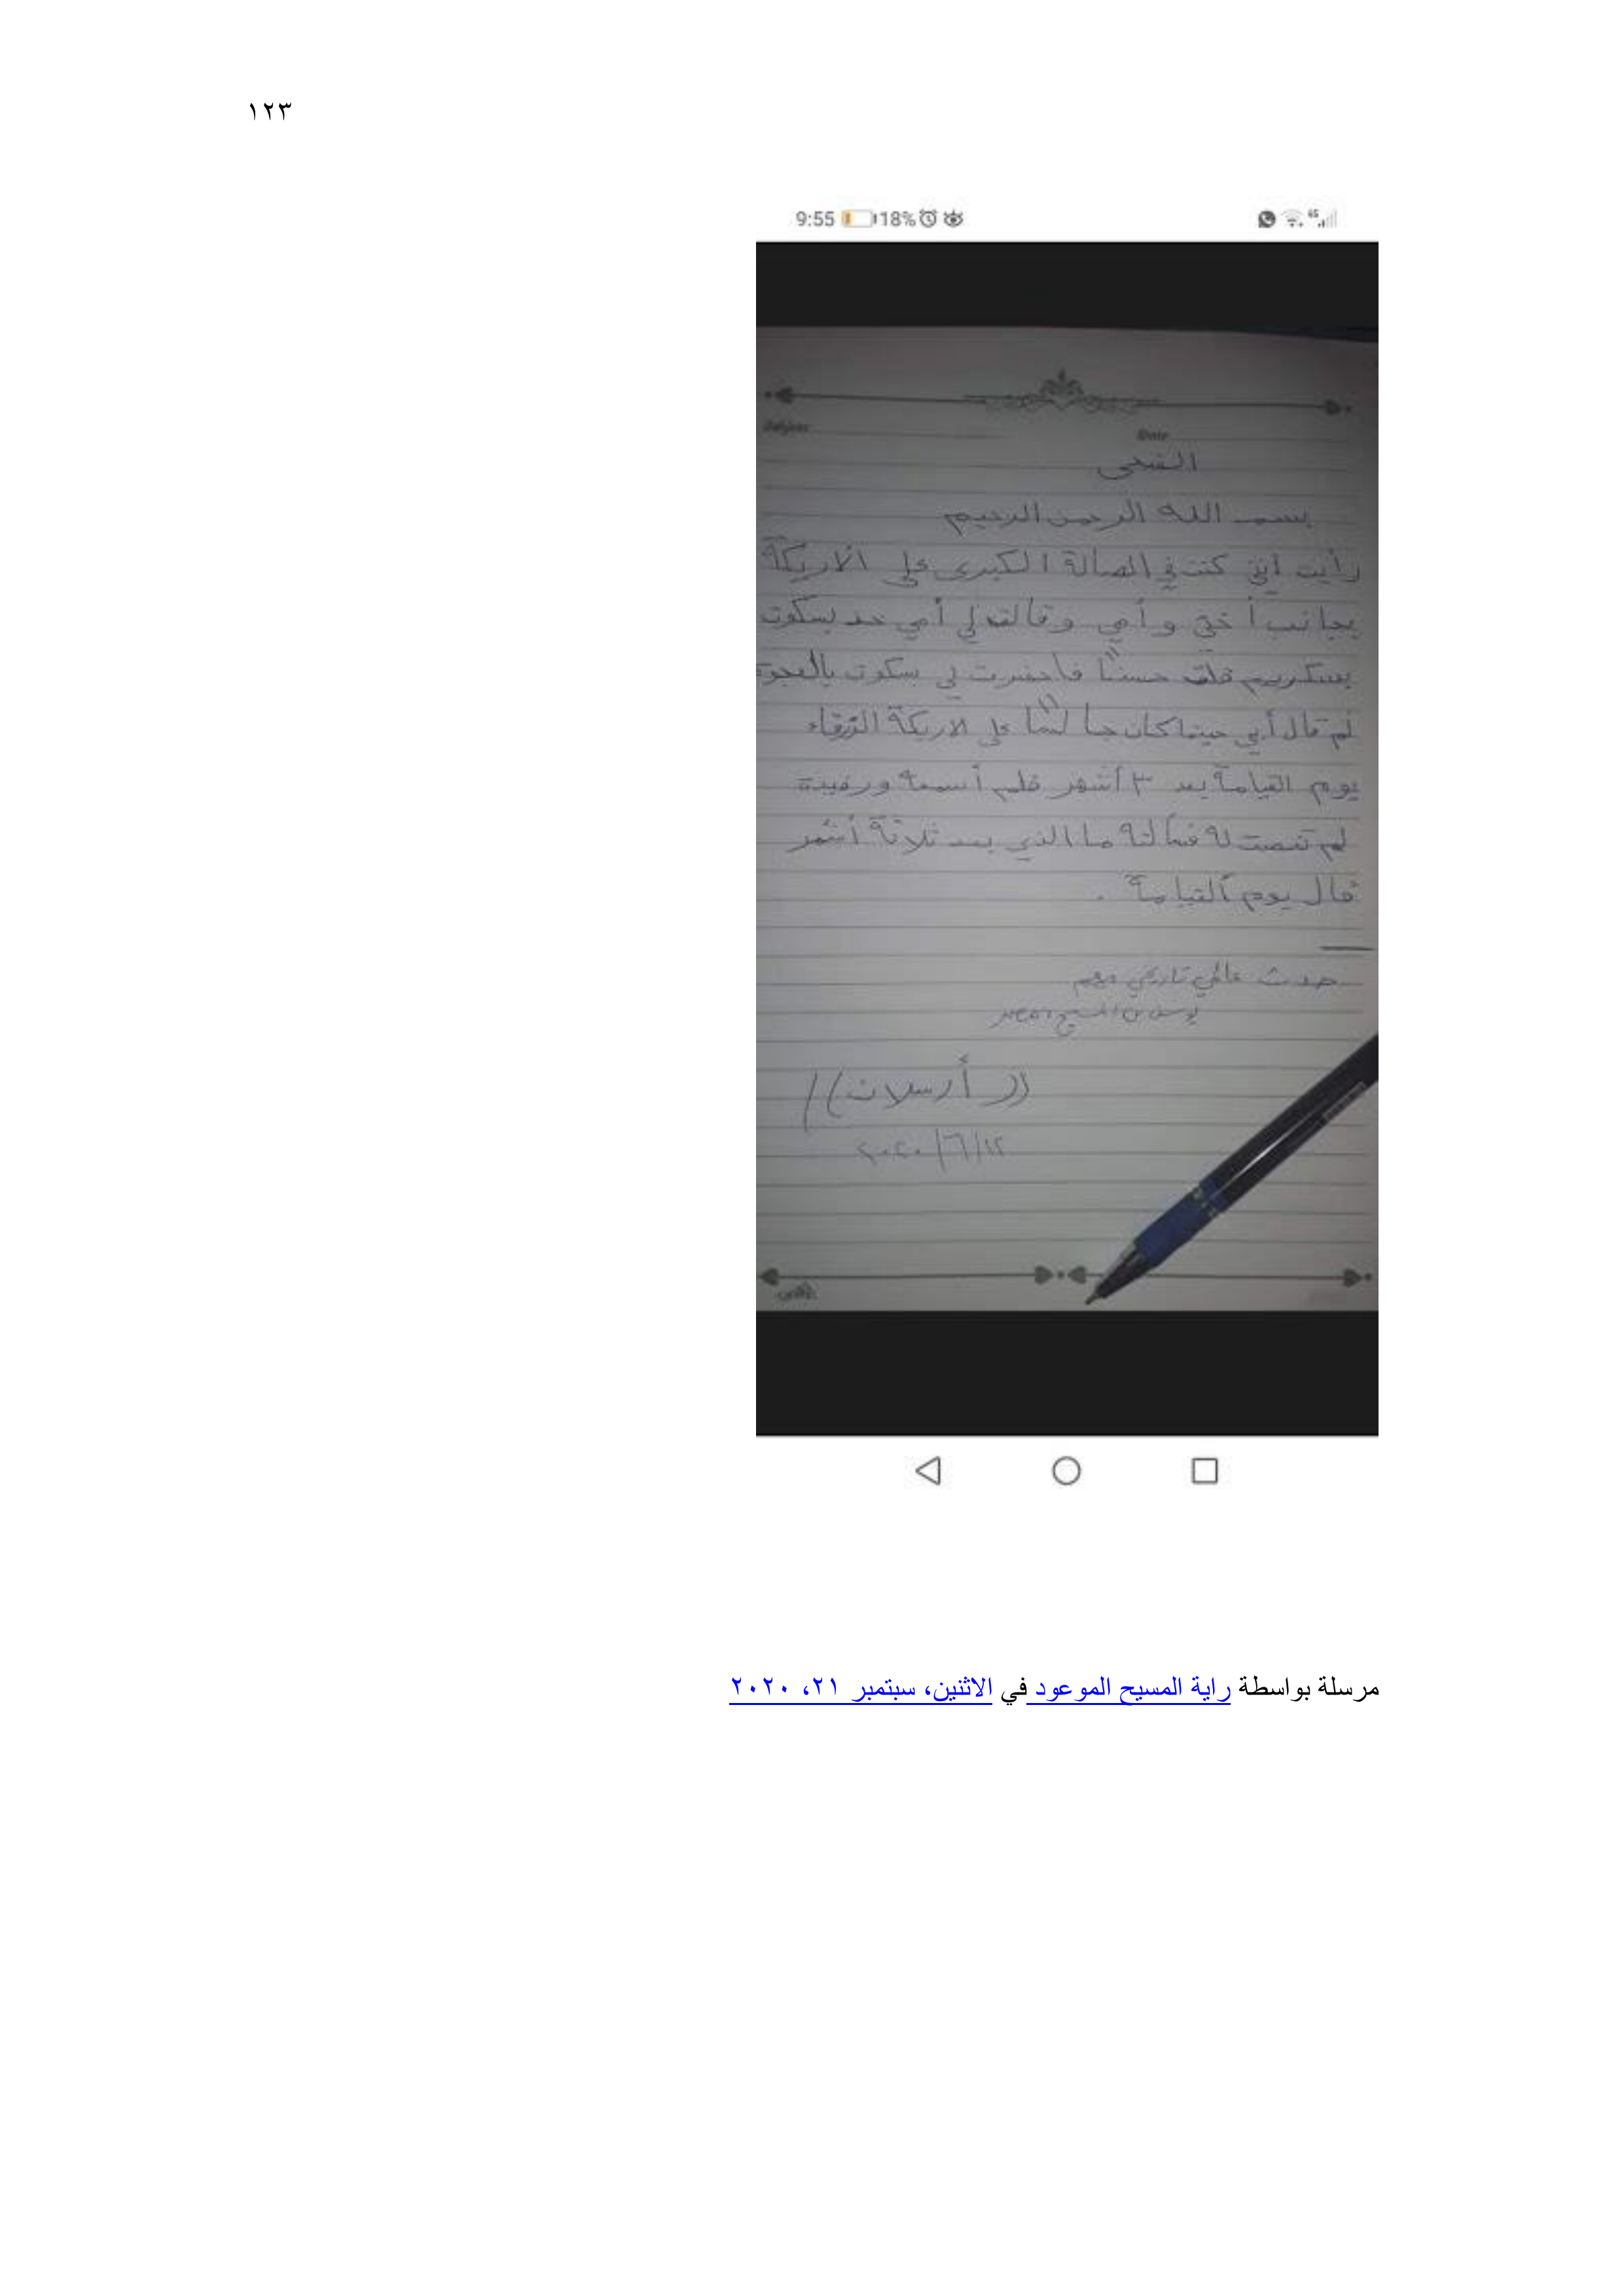 ١٢٣
9:55 18%
Subject
Date
الضحى
بسم الله الرحمن الرحيم
رأيت اني كنت في الصالة الكبرى على الأريكة
بجانب أختي و أمي وقالت لي أمي خد بسكوت
بسكريم قلت حسنًا فأحضرت لي بسكوت بالعجوة
ثم قال أبي حينما كان جالسًا على الاريكة الزرقاء
يوم القيامة بعد ٣ أشهر فلم أسمعه ورفيدة
لم تنصت له فسألته ما الذي بعد ثلاثة أشهر
قال يوم القيامة .
حدث عالمي تاريخي مهم
يوسف بن المسيح
((أرسلان))
١٢/٦/٢٠٢٠
مرسلة بواسطة راية المسيح الموعود في الاثنين، سبتمبر ٢١، ٢٠٢٠